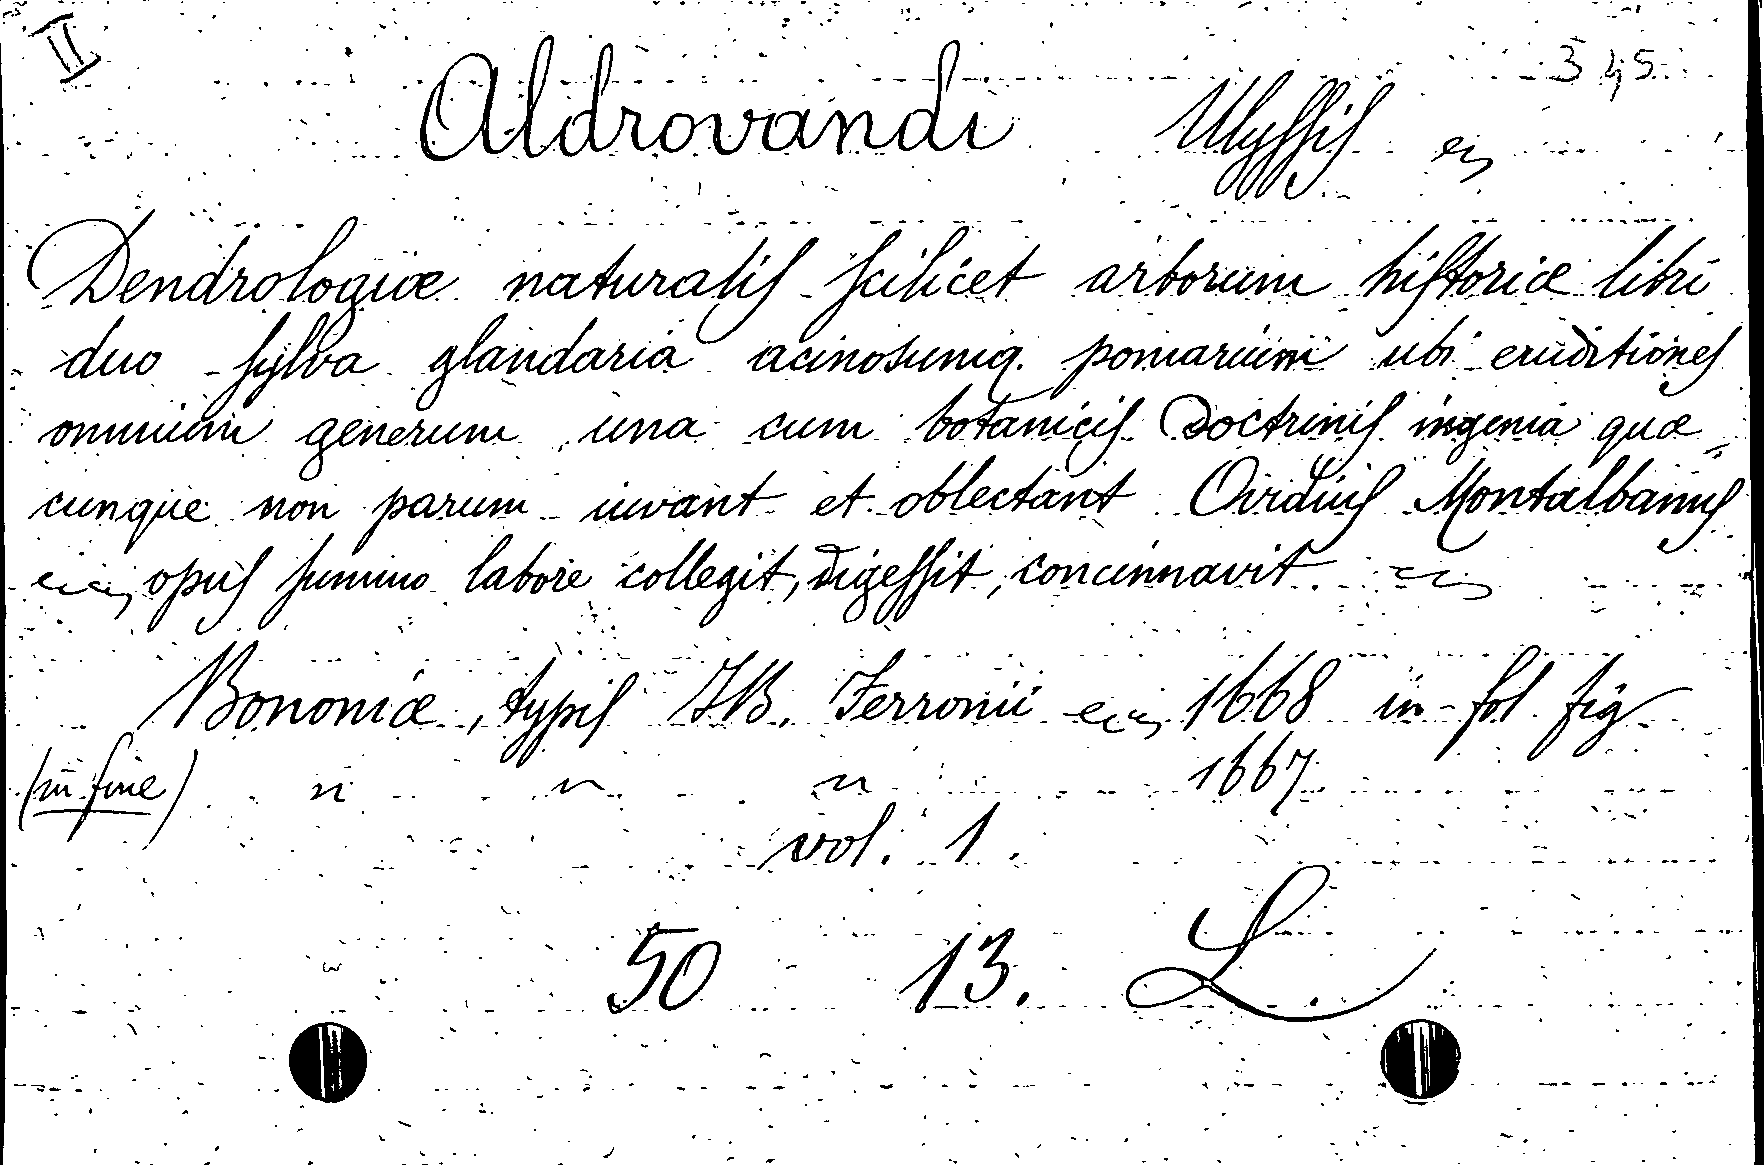 II
345
Aldrovandi Ulyssis
Dendrologiæ naturalis scilicet arborum historiæ libri
duo sylva glandaria acinosumq. pomarium ubi eruditiones
omnium generum una cum botanicis doctrinis ingenia quæ=
cunque non parum iuvant et oblectant Ovidius Montalbanus
opus summo labore collegit, digessit, concinnavit
Bononiæ, typis JB. Ferronii 1668 in-fol fig
(in fine) " " " 1667
vol. 1.
50 13. L